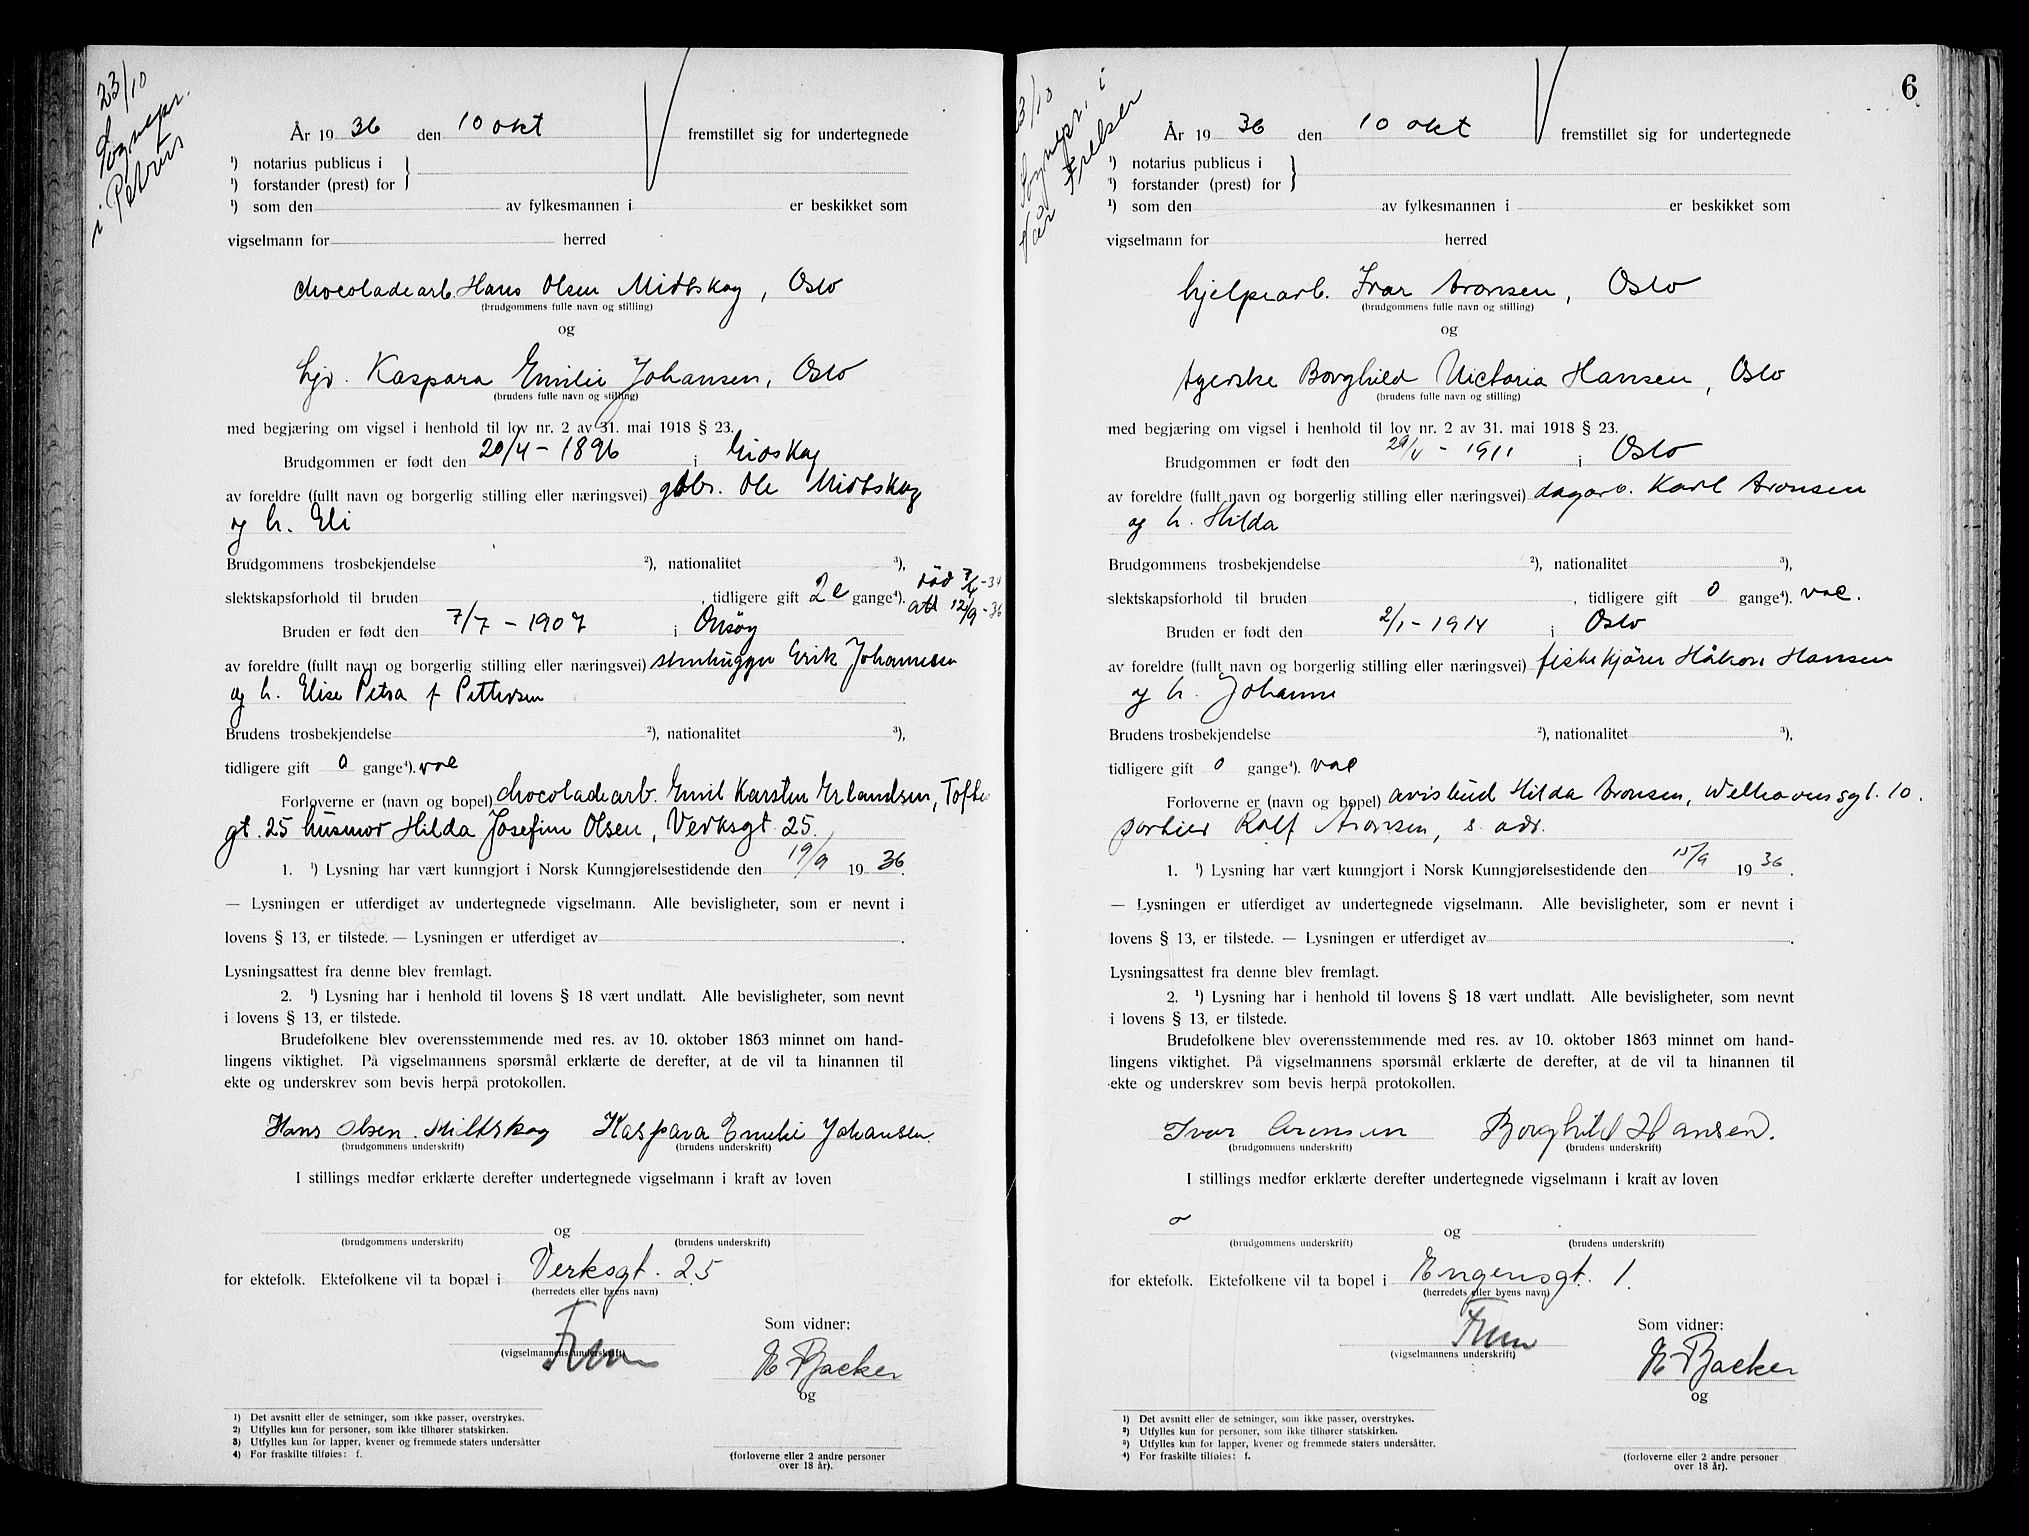 23/10
Sognepr.
i Petrus
År 1936 den 10 okt fremstillet sig for undertegnede
¹) notarius publicus i
¹) forstander (prest) for
¹) som den av fylkesmannen i er beskikket som
vigselmann for herred
chocoladearb. Hans Olsen Midtskog, Oslo
(brudgommens fulle navn og stilling)
og
hjv. Kaspara Emilie Johansen, Oslo
(brudens fulle navn og stilling)
med begjæring om vigsel i henhold til lov nr. 2 av 31. mai 1918 § 23.
Brudgommen er født den 20/4 - 1896 i Eidskog
av foreldre (fullt navn og borgerlig stilling eller næringsvei) gbr. Ole Midtskog
og h. Eli
Brudgommens trosbekjendelse ²), nationalitet ³),
slektskapsforhold til bruden , tidligere gift 2e gange⁴). død
att 12/9-36
Bruden er født den 7/7 - 1907 i Onsøy
av foreldre (fullt navn og borgerlig stilling eller næringsvei) stenhugger Erik Johannesen
og h. Elise Petra f Pettersen
Brudens trosbekjendelse ²), nationalitet ³),
tidligere gift 0 gange⁴). vac
Forloverne er (navn og bopel) chocoladearb. Emil Karsten Erlandsen, Toftes
gt. 25 husmor Hilda Josefine Olsen, Verksgt 25.
1. ¹) Lysning har vært kunngjort i Norsk Kunngjørelsestidende den 19/9 1936.
— Lysningen er utferdiget av undertegnede vigselmann. Alle bevisligheter, som er nevnt i
lovens § 13, er tilstede. — Lysningen er utferdiget av .
Lysningsattest fra denne blev fremlagt.
2. ¹) Lysning har i henhold til lovens § 18 vært undlatt. Alle bevisligheter, som nevnt
i lovens § 13, er tilstede.
Brudefolkene blev overensstemmende med res. av 10. oktober 1863 minnet om hand-
lingens viktighet. På vigselmannens spørsmål erklærte de derefter, at de vil ta hinannen til
ekte og underskrev som bevis herpå protokollen.
Hans Olsen. Midtskog Kaspara Emelie Johansen.
(brudgommens underskrift) (brudens underskrift)
I stillings medfør erklærte derefter undertegnede vigselmann i kraft av loven
og
(brudgommens underskrift) (brudens underskrift)
for ektefolk. Ektefolkene vil ta bopæl i Verksgt. 25
(herredets eller byens navn)
Som vidner:
(vigselmannens underskrift)
E. Backer
og
1) Det avsnitt eller de setninger, som ikke passer, overstrykes.
2) Utfylles kun for personer, som ikke tilhører statskirken.
3) Utfylles kun for lapper, kvener og fremmede staters undersåtter
4) For fraskilte tilføies: f.
(forloverne eller 2 andre personer
over 18 år).
6
23/10
Sognepr. i
Vår Frelser
År 1936 den 10 okt fremstillet sig for undertegnede
¹) notarius publicus i
¹) forstander (prest) for
¹) som den av fylkesmannen i er beskikket som
vigselmann for herred
hjelpearb. Ivar Aronsen, Oslo
(brudgommens fulle navn og stilling)
og
syerske Borghild Victoria Hansen, Oslo
(brudens fulle navn og stilling)
med begjæring om vigsel i henhold til lov nr. 2 av 31. mai 1918 § 23.
Brudgommen er født den - 1911 i Oslo
av foreldre (fullt navn og borgerlig stilling eller næringsvei) dagarb. Karl Aronsen
og h. Hilda
Brudgommens trosbekjendelse ²), nationalitet ³),
slektskapsforhold til bruden , tidligere gift 0 gange⁴). vac.
Bruden er født den 2/1 - 1914 i Oslo
av foreldre (fullt navn og borgerlig stilling eller næringsvei) fiskekjører Håkon Hansen
og h. Johanne
Brudens trosbekjendelse ²), nationalitet ³),
tidligere gift 0 gange⁴). vac
Forloverne er (navn og bopel) avisbud Hilda Aronsen, Welhavensgt. 10.
portier Rolf Aronsen, s. adr.
1. ¹) Lysning har vært kunngjort i Norsk Kunngjørelsestidende den 15/9 1936.
— Lysningen er utferdiget av undertegnede vigselmann. Alle bevisligheter, som er nevnt i
lovens § 13, er tilstede. — Lysningen er utferdiget av .
Lysningsattest fra denne blev fremlagt.
2. ¹) Lysning har i henhold til lovens § 18 vært undlatt. Alle bevisligheter, som nevnt
i lovens § 13, er tilstede.
Brudefolkene blev overensstemmende med res. av 10. oktober 1863 minnet om hand-
lingens viktighet. På vigselmannens spørsmål erklærte de derefter, at de vil ta hinannen til
ekte og underskrev som bevis herpå protokollen.
Ivar Aronsen Borghild Hansen.
(brudgommens underskrift) (brudens underskrift)
I stillings medfør erklærte derefter undertegnede vigselmann i kraft av loven
og
(brudgommens underskrift) (brudens underskrift)
for ektefolk. Ektefolkene vil ta bopel i Engensgt. 1.
(herredets eller byens navn)
Som vidner:
(vigselmannens underskrift)
E. Backer
og
¹) Det avsnitt eller de setninger, som ikke passer, overstrykes.
²) Utfylles kun for personer, som ikke tilhører statskirken.
³) Utfylles kun for lapper, kvener og fremmede staters undersåtter.
⁴) For fraskilte tilføies: f.
(forloverne eller 2 andre personer
over 18 år).